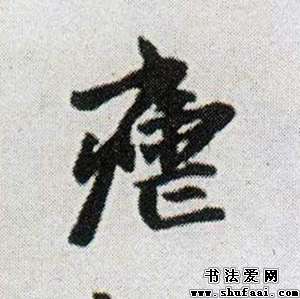 瘧
书法爱网
www.shufaai.com